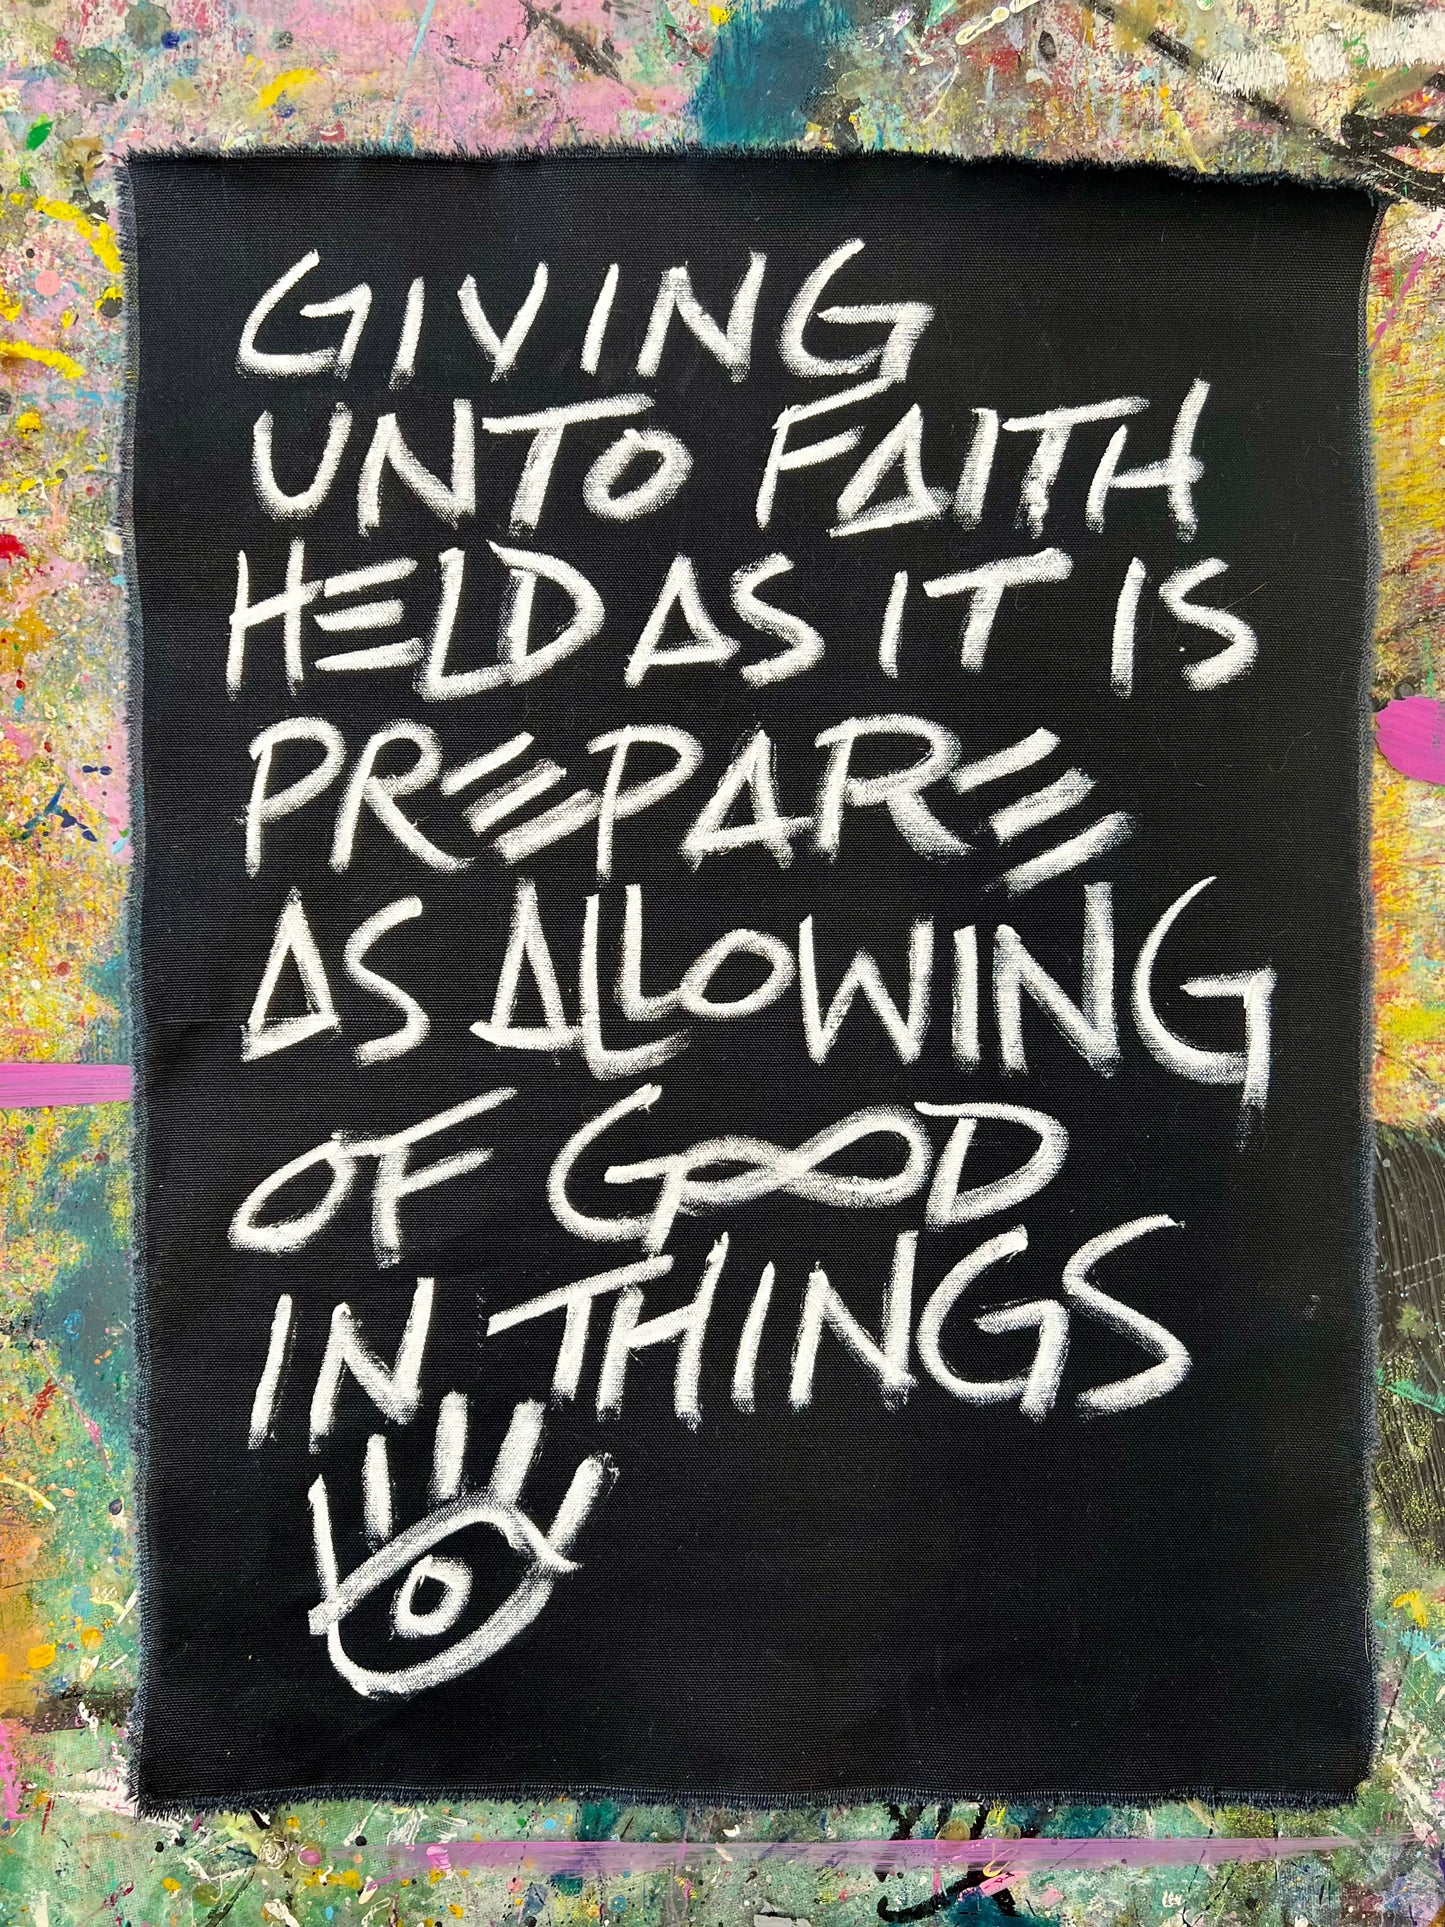 GIVING
UNTO FAITH
HELD AS IT IS
PREPARE
AS ALLOWING
OF GOOD
IN THINGS